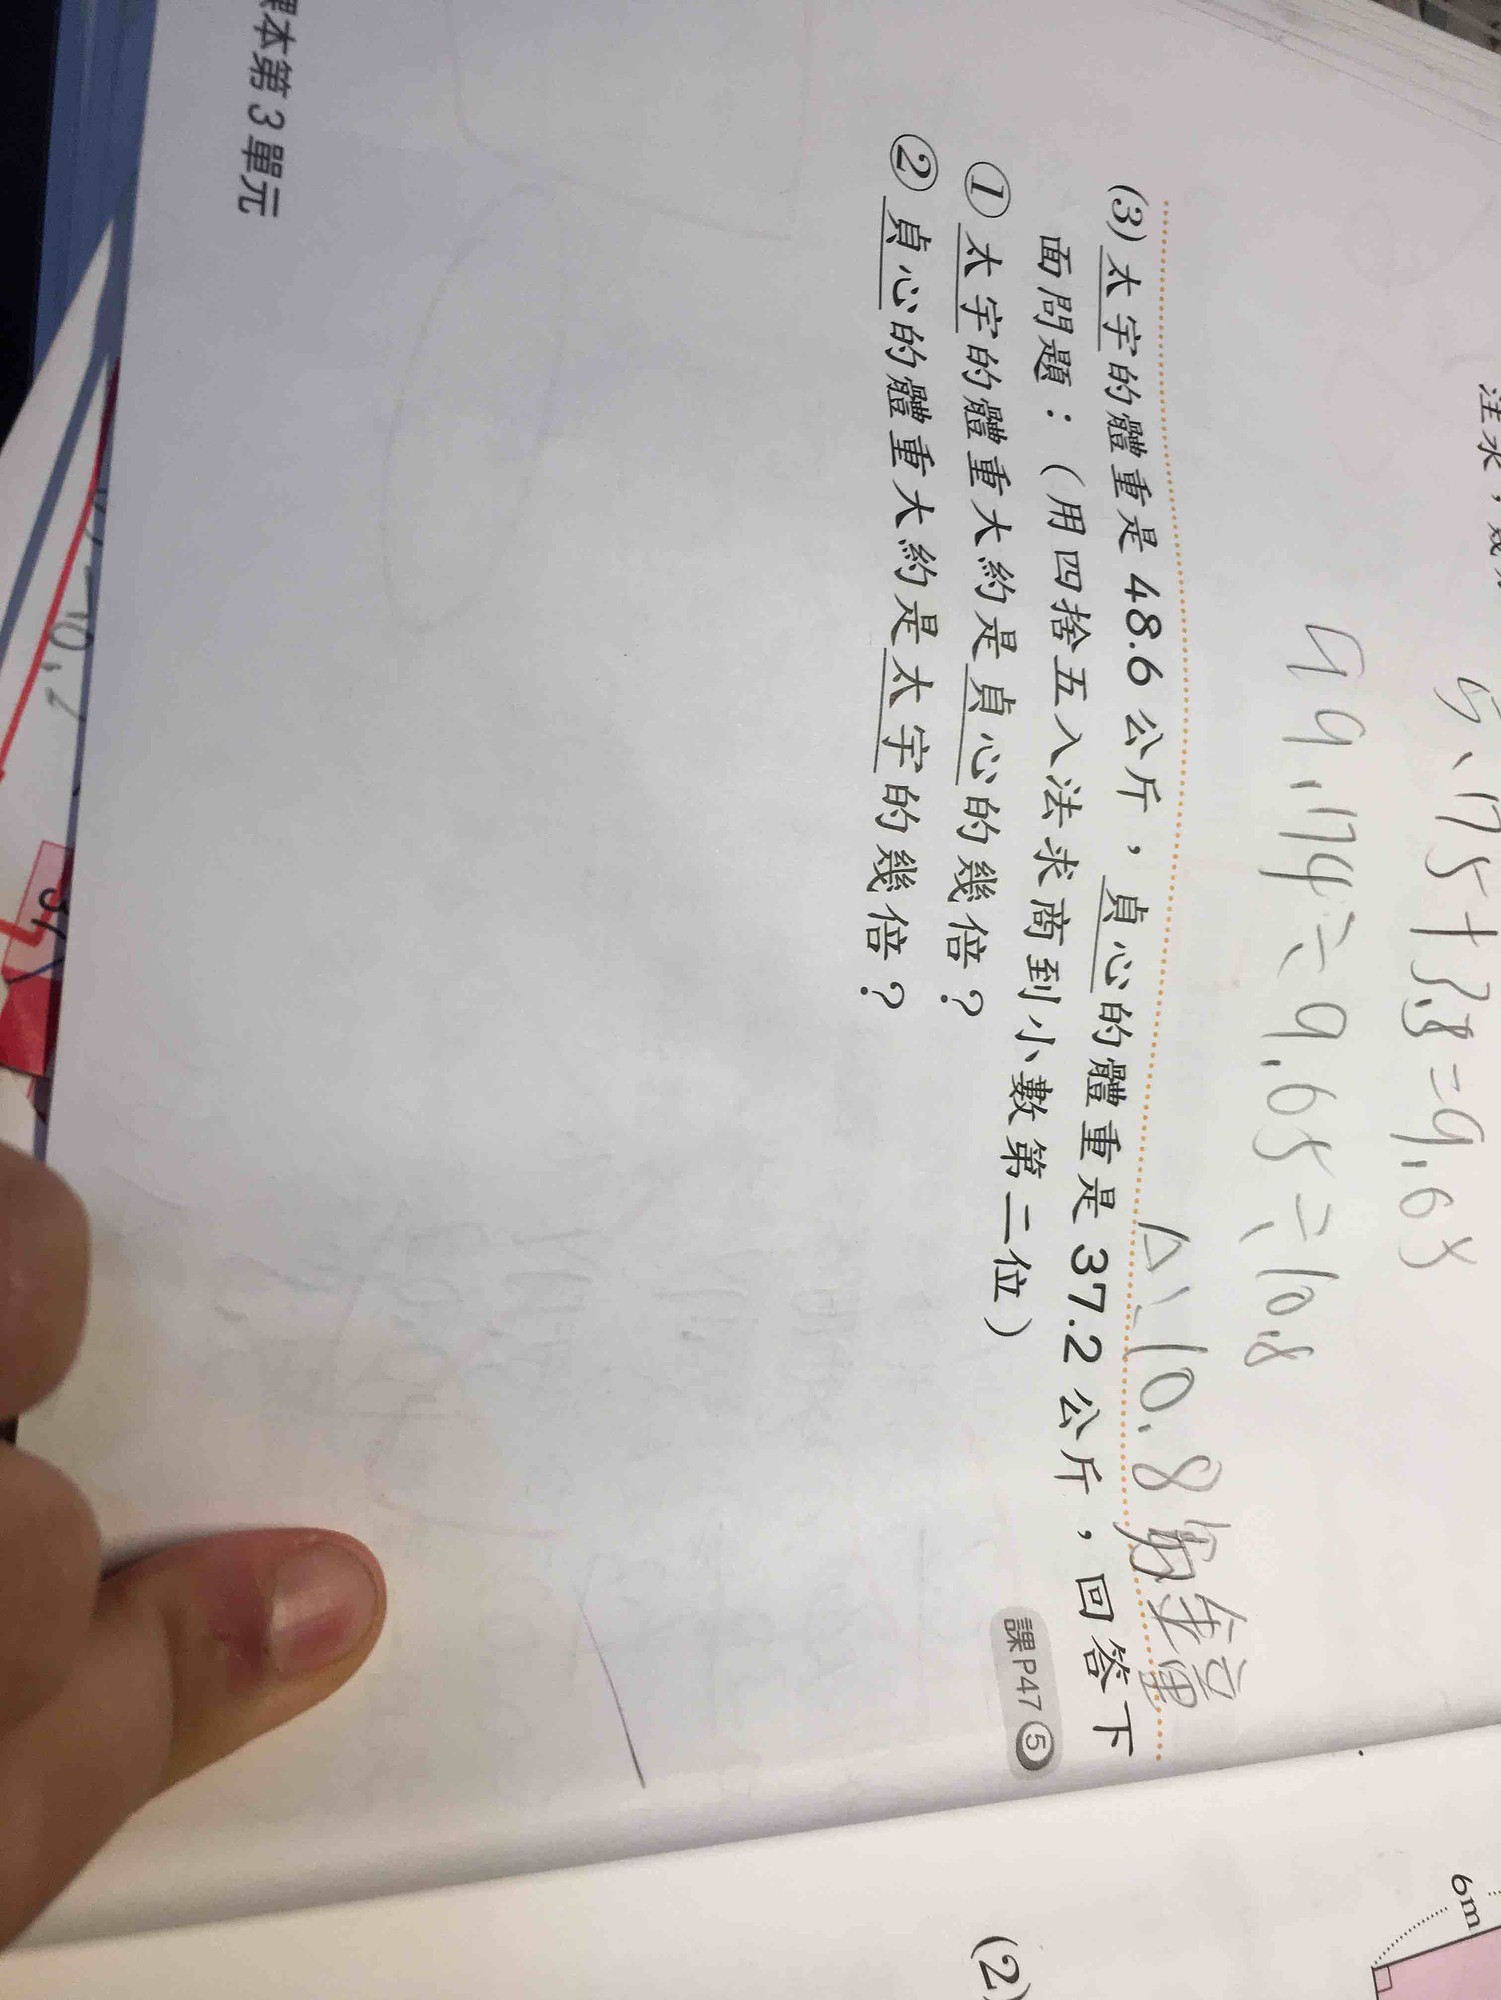 注水，幾
5.175+3.8=9.65
99.174÷9.65=10.8
A:10.8
(3)太宇的體重是48.6公斤，貞心的體重是37.2公斤，回答下
面問題：（用四捨五入法求商到小數第二位）
課P47⑤
①太宇的體重大約是貞心的幾倍？
②貞心的體重大約是太宇的幾倍？
課本第3單元
6m
(2)